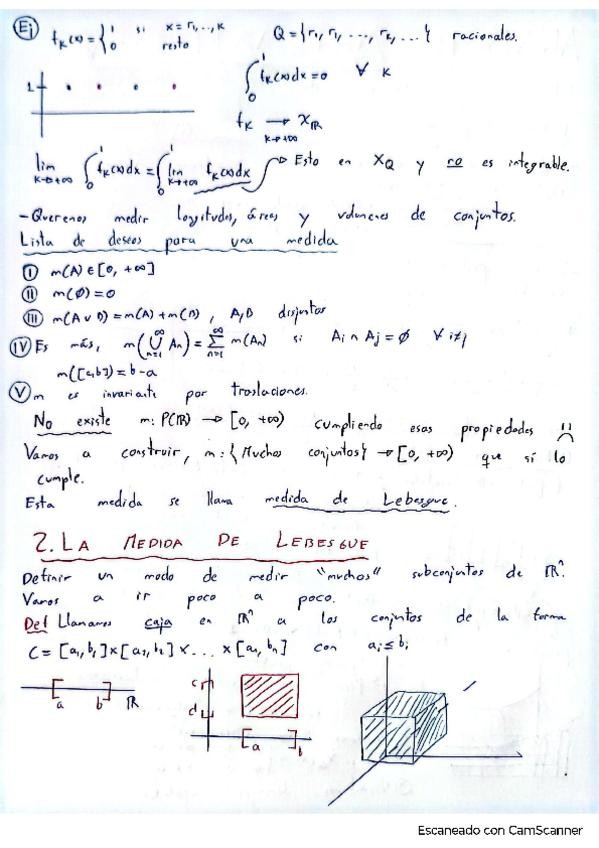 Ej f_k(x) = { 1 si x = r_1, ..., k
0 resto
Q = {r_1, r_1, ..., r_k, ...} racionales.
∫_0^1 f_k(x)dx = 0 ∀ k
1
f_k → χ_R
k→+∞
lim_{k→+∞} ∫_0^1 f_k(x)dx = ∫_0^1 lim_{k→+∞} f_k(x)dx → Esto en χ_Q y no es integrable.
- Queremos medir longitudes, áreas y volúmenes de conjuntos.
Lista de deseos para una medida
I m(A) ∈ [0, +∞]
II m(∅) = 0
III m(A ∪ B) = m(A) + m(B), A, B disjuntos
IV Es más, m(⋃_{n=1}^∞ A_n) = ∑_{n=1}^∞ m(A_n) si A_i ∩ A_j = ∅ ∀ i≠j
m([a,b]) = b-a
V m es invariante por traslaciones.
No existe m: P(R) → [0, +∞) cumpliendo esas propiedades
Vamos a construir, m: {Muchos conjuntos} → [0, +∞) que sí lo
cumple.
Esta medida se llama medida de Lebesgue.
2. LA MEDIDA DE LEBESGUE
Definir un modo de medir "muchos" subconjuntos de R^n.
Vamos a ir poco a poco.
Def Llamamos caja en R^n a los conjuntos de la forma
C = [a_1, b_1] × [a_2, b_2] × ... × [a_n, b_n] con a_i ≤ b_i
a b R
c
d
a b
Escaneado con CamScanner